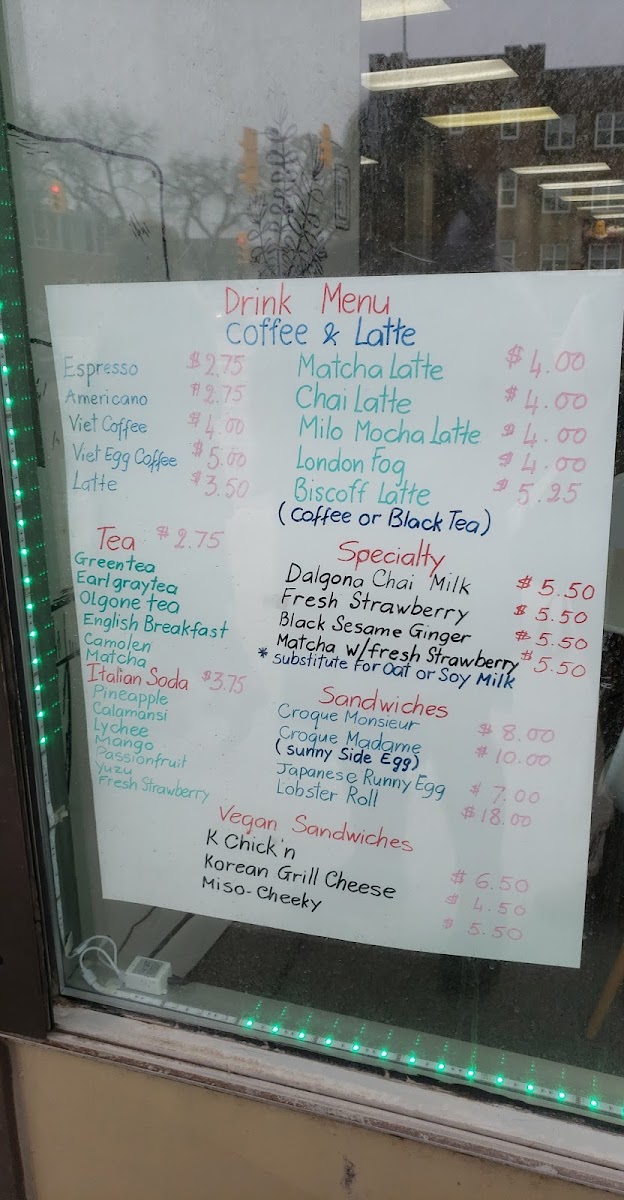 Drink Menu
Coffee & Latte
Espresso $2.75
Americano $2.75
Viet Coffee $4.00
Viet Egg Coffee $5.00
Latte $3.50
Matcha Latte $4.00
Chai Latte $4.00
Milo Mocha Latte $4.00
London Fog $4.00
Biscoff Latte $5.25
(Coffee or Black Tea)
Tea $2.75
Green tea
Earl gray tea
Olgone tea
English Breakfast
Camolen
Matcha
Italian Soda $3.75
Pineapple
Calamansi
Lychee
Mango
Passionfruit
Yuzu
Fresh Strawberry
Specialty
Dalgona Chai Milk $5.50
Fresh Strawberry $5.50
Black Sesame Ginger $5.50
Matcha w/fresh Strawberry $5.50
* substitute for Oat or Soy Milk
Sandwiches
Croque Monsieur $8.00
Croque Madame $10.00
(Sunny Side Egg)
Japanese Runny Egg $7.00
Lobster Roll $18.00
Vegan Sandwiches
K Chick'n $6.50
Korean Grill Cheese $4.50
Miso-Cheeky $5.50